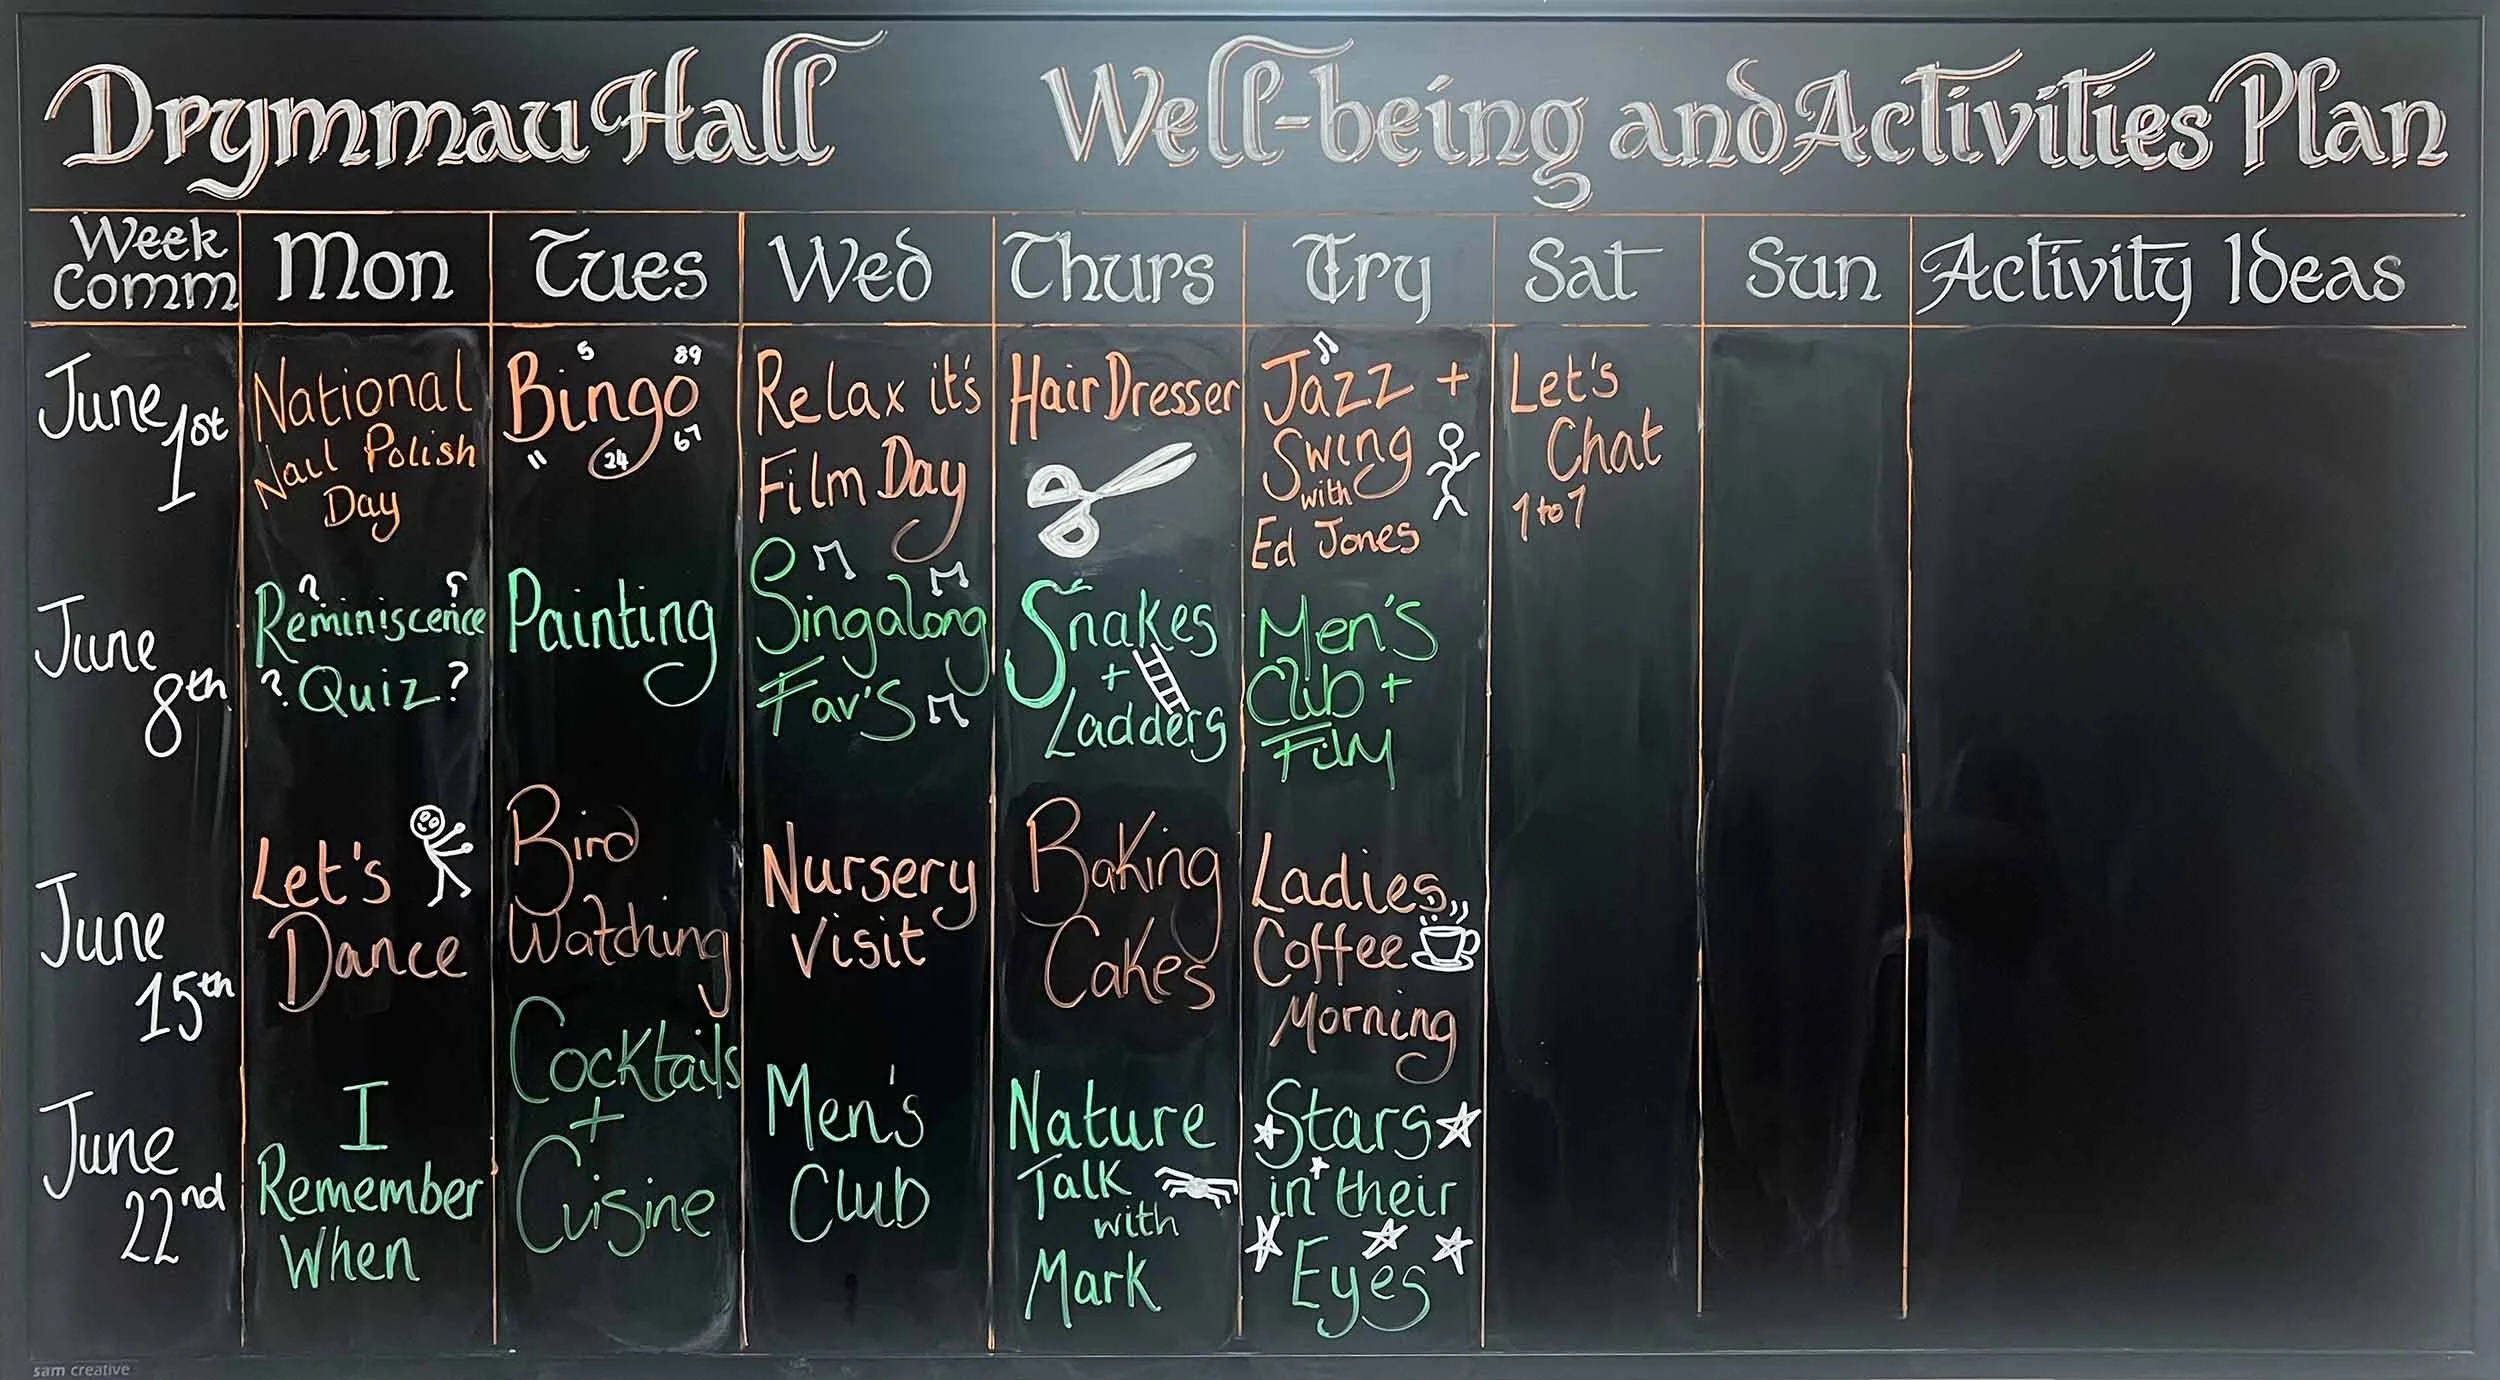 Drymmau Hall Well-being and Activities Plan
Week Comm Mon Tues Wed Thurs Fry Sat Sun Activity Ideas
June 1st
National
Nail Polish
Day
5 89
Bingo
11 24 67
Relax it's
Film Day
HairDresser
Jazz +
Swing
with
Ed Jones
Let's
Chat
1 to 1
June 8th
? ?
Reminiscence
? Quiz ?
Painting
Singalong
Fav's
Snakes
+
Ladders
Men's
Club +
Film
June 15th
Let's
Dance
Bird
Watching
Nursery
Visit
Baking
Cakes
Ladies
Coffee
Morning
June 22nd
I
Remember
When
Cocktails
+
Cuisine
Men's
Club
Nature
Talk
with
Mark
Stars
in their
Eyes
sam creative